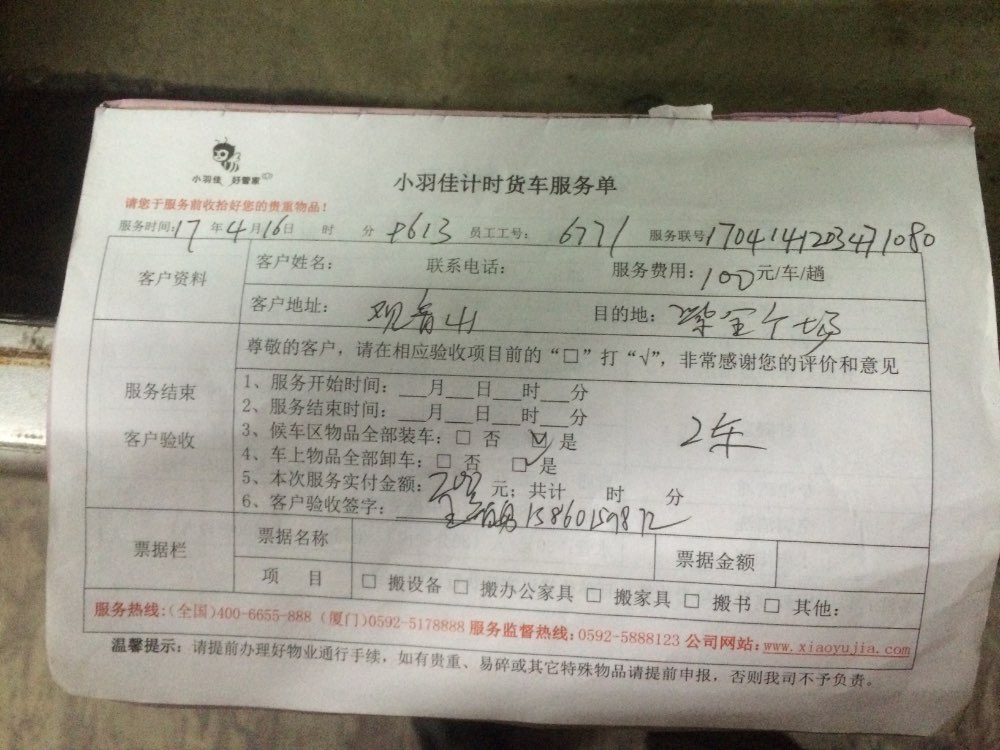 小羽佳 好管家
小羽佳计时货车服务单
请您于服务前收拾好您的贵重物品！
服务时间：17年4月16日 时 分 员工工号： 6771 服务联号
客户资料
客户姓名： 联系电话： 服务费用：100元/车/趟
客户地址： 观音山 目的地：
服务结束
客户验收
尊敬的客户，请在相应验收项目前的“□”打“√”，非常感谢您的评价和意见
1、服务开始时间：___月___日___时___分
2、服务结束时间：___月___日___时___分
3、候车区物品全部装车：□ 否 ☑ 是
2车
4、车上物品全部卸车：□ 否 □ 是
5、本次服务实付金额： 元；共计 时 分
6、客户验收签字：
票据栏
票据名称
票据金额
项 目
□ 搬设备 □ 搬办公家具 □ 搬家具 □ 搬书 □ 其他：
服务热线：（全国）400-6655-888（厦门）0592-5178888 服务监督热线：0592-5888123 公司网站：www.xiaoyujia.com
温馨提示：请提前办理好物业通行手续，如有贵重、易碎或其它特殊物品请提前申报，否则我司不予负责。